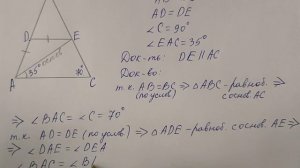 AD = DE
∠C = 90°
∠EAC = 35°
Док-ть: DE ∥ AC
Док-во:
т.к. AB = BC (по услов) ⇒ △ABC - равноб. с основ AC
⇒ ∠BAC = ∠C = 70°
т.к. AD = DE (по услов) ⇒ △ADE - равноб. с основ. AE ⇒
⇒ ∠DAE = ∠DEA
∠BAC =
D
E
A
35°
70°
C